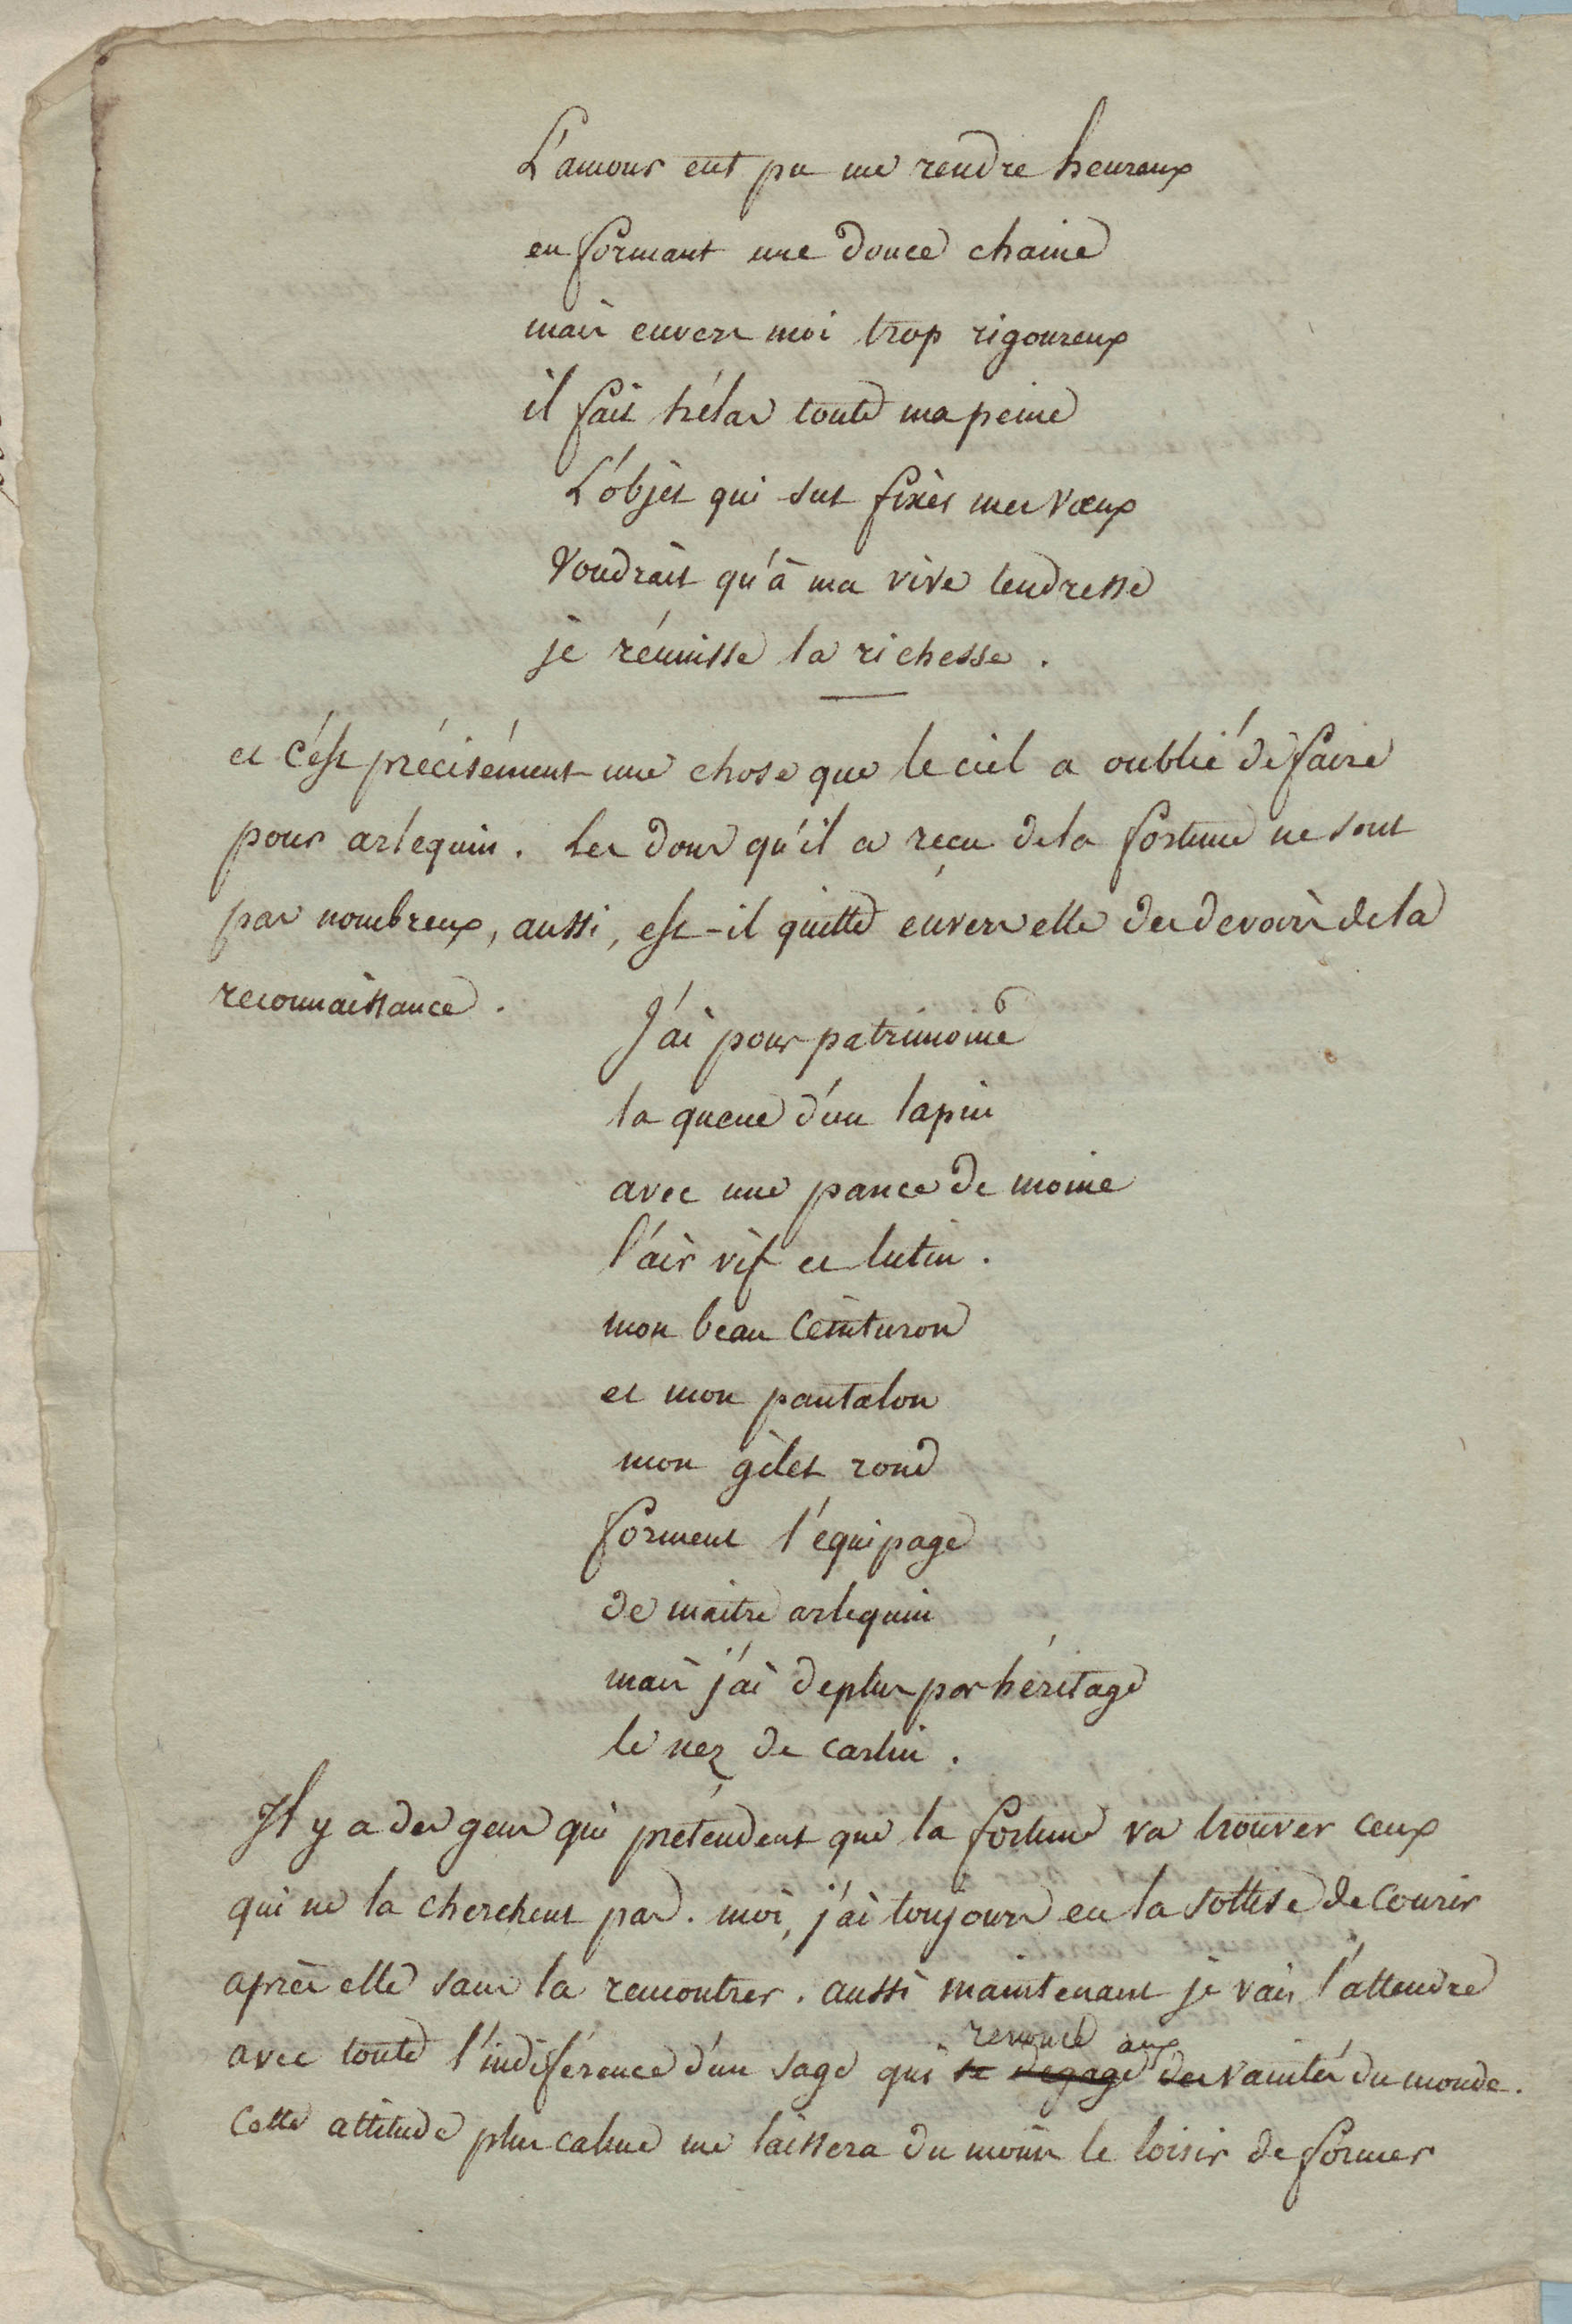 L'amour eut pu me rendre heureux
en formant une douce chaine
mais envers moi trop rigoureux
il fait hélas toute ma peine
L'objèt qui sut fixèr mes vœux
voudrait qu'à ma vive tendresse
je réunisse la richesse.
et c'est précisément une chose que le ciel a oublié de faire
pour arlequin. Les dons qu'il a reçu de la fortune ne sont
pas nombreux, aussi, est-il quitte envers elle des devoirs de la
reconnaissance.
J'ai pour patrimoine
la queue d'un lapin
avec une pance de moine
l'air vif et lutin.
mon beau ceinturon
et mon pantalon
mon gilet rond
forment l'équipage
de maitre arlequin
mais j'ai de plus par héritage
le nez de carlin.
Il y a des gens qui prétendent que la fortune va trouver ceux
qui ne la cherchent pas. moi, j'ai toujours eu la sottise de courir
après elle sans la rencontrer. aussi maintenant je vais l'attendre
renonce aux
avec toute l'indiférence d'un sage qui se degage des vanités du monde.
Cette attitude plus calme me laissera du moins le loisir de former